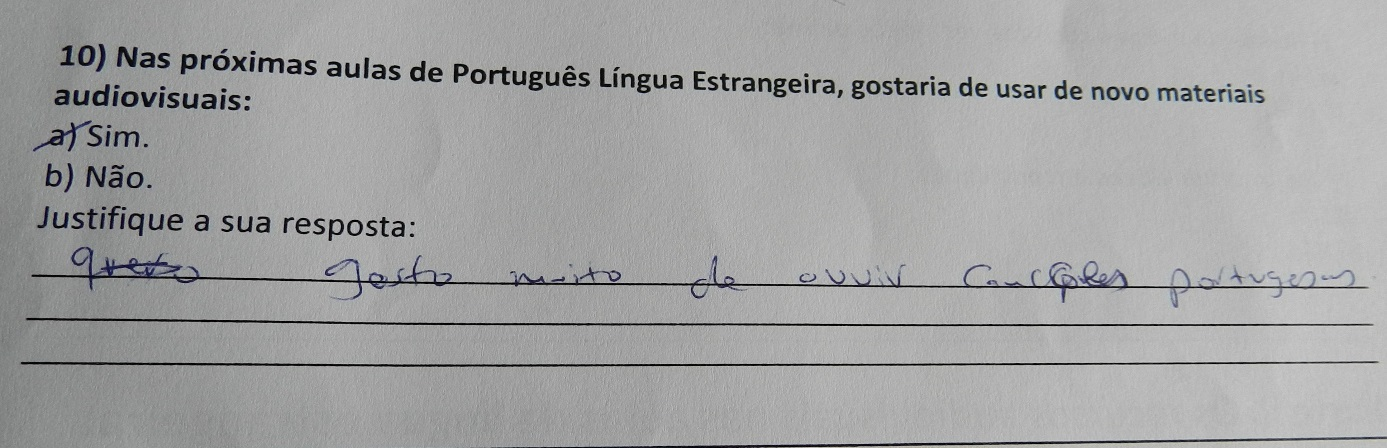 10) Nas próximas aulas de Português Língua Estrangeira, gostaria de usar de novo materiais
audiovisuais:
a) Sim.
b) Não.
Justifique a sua resposta:
gosto muito de ouvir portugesas